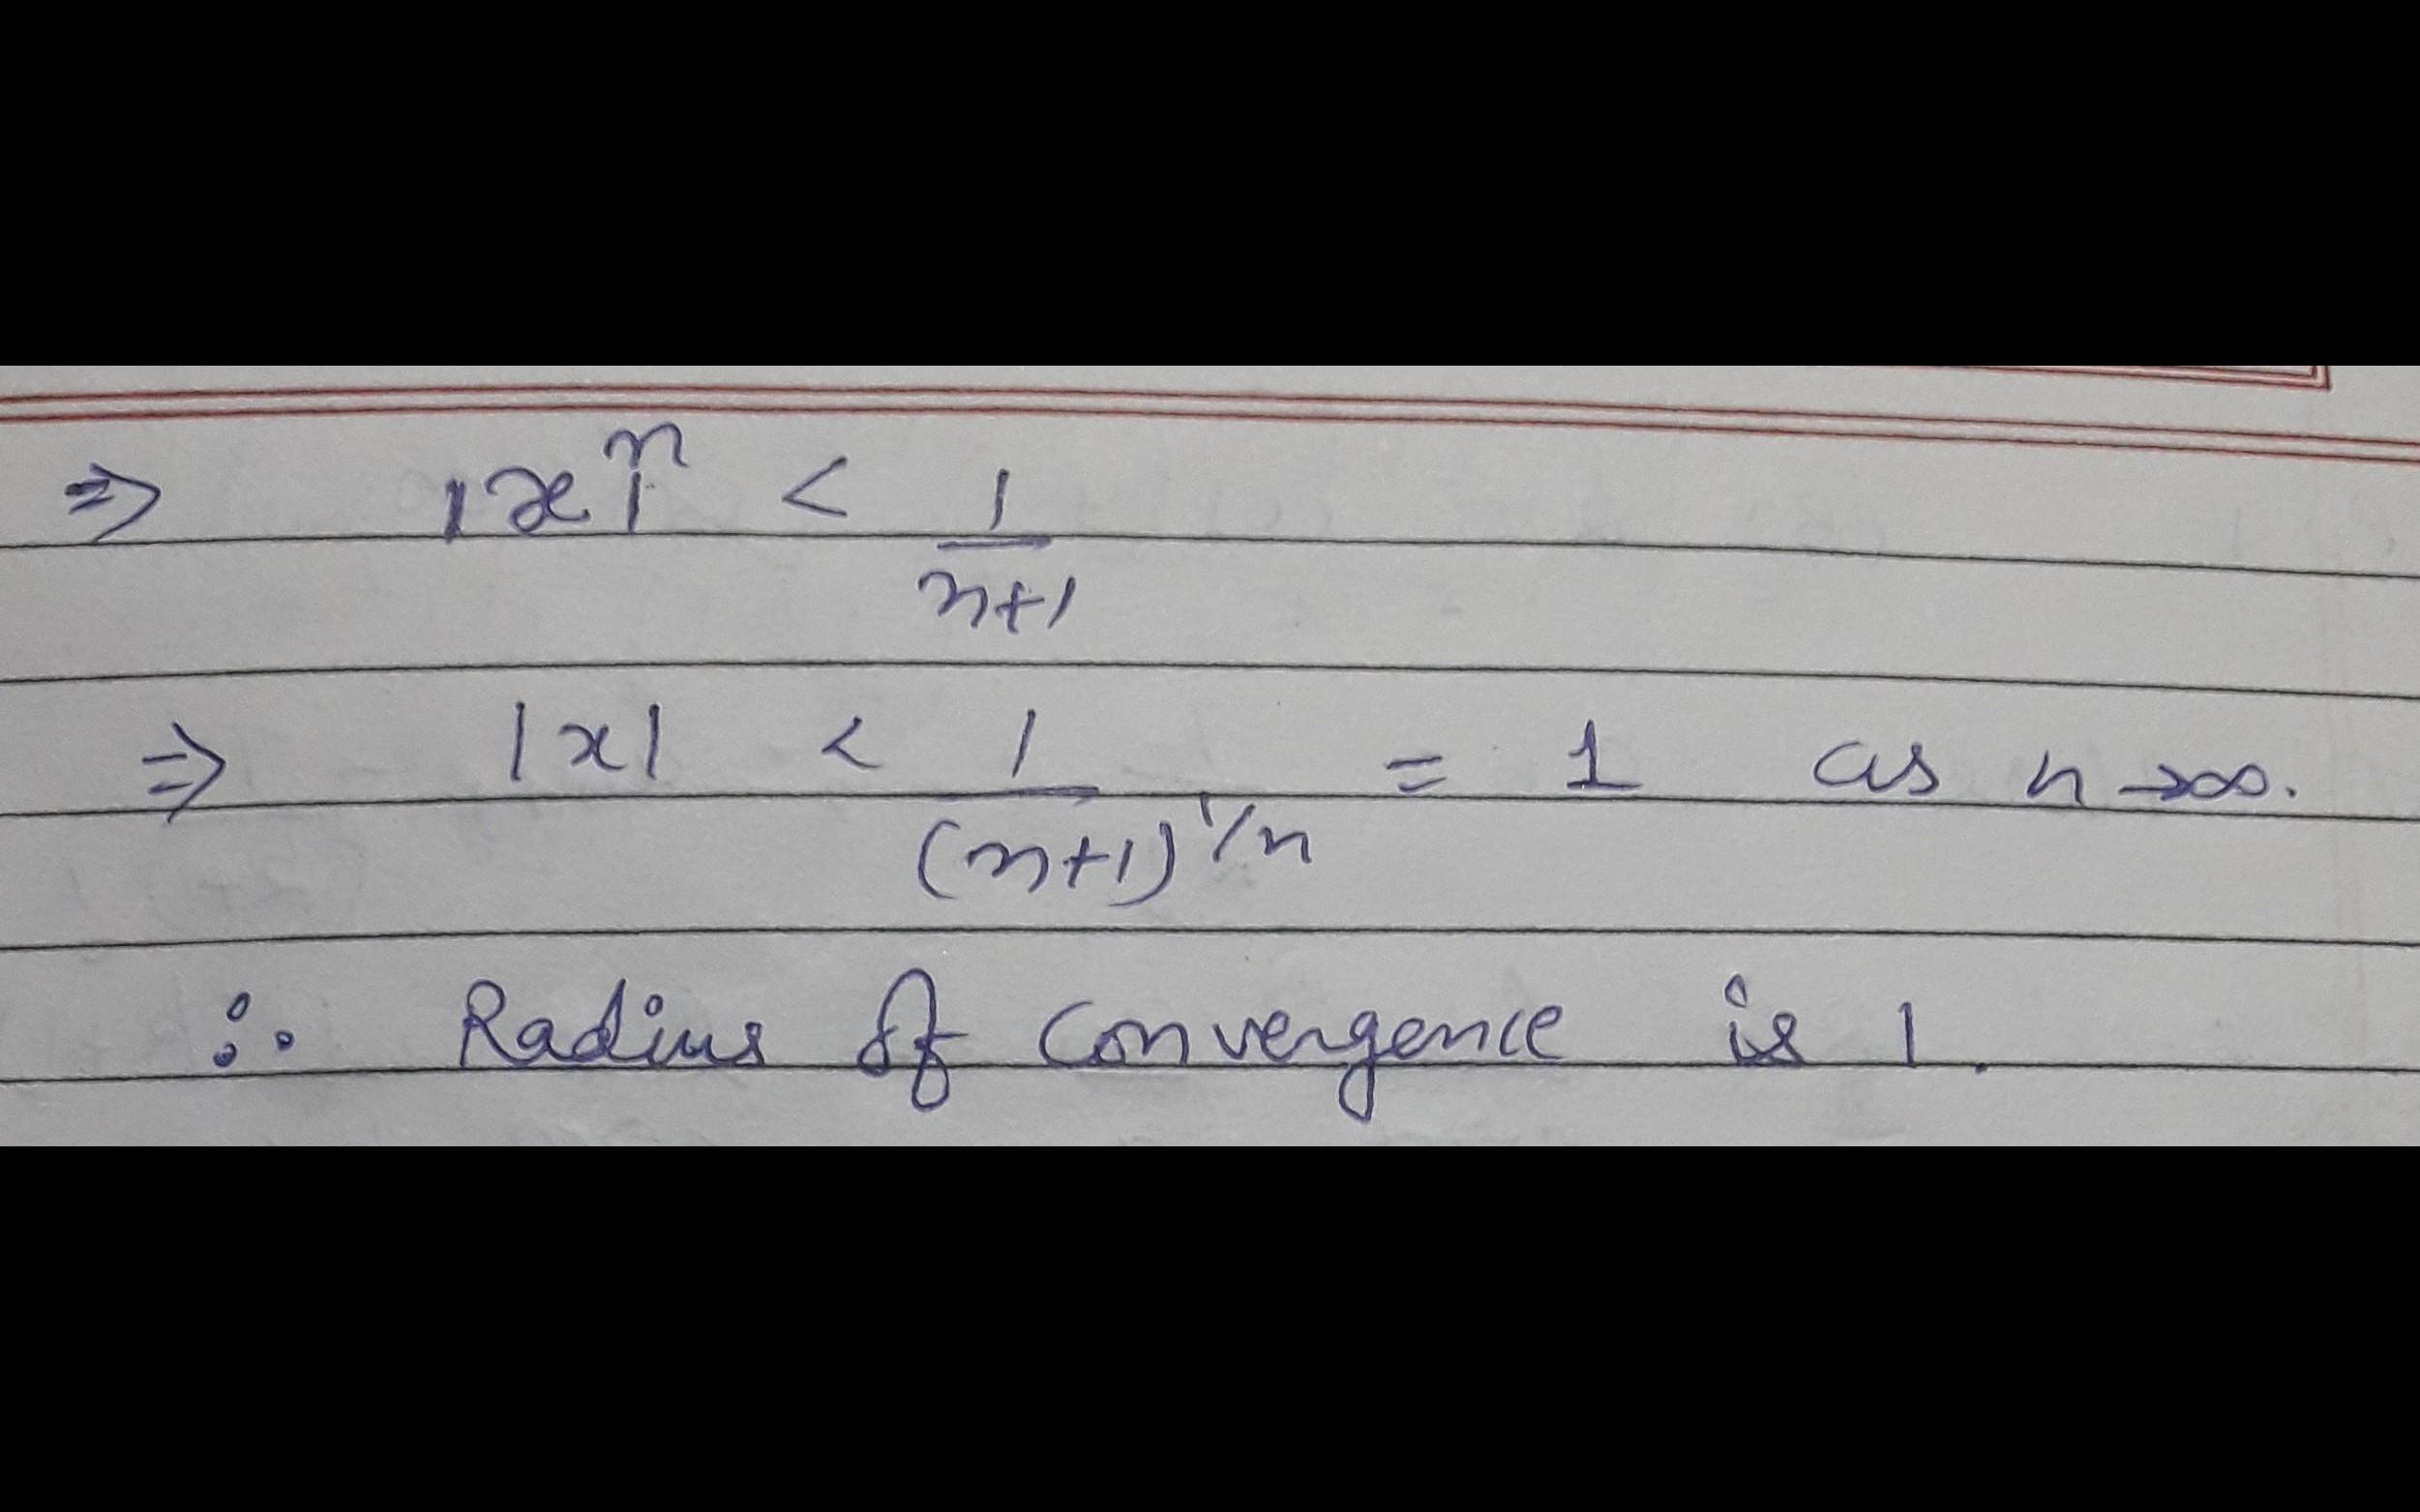 ⇒ |x|^n < 1/(n+1)
⇒ |x| < 1/(n+1)^{1/n} = 1 as n→∞.
∴ Radius of convergence is 1.